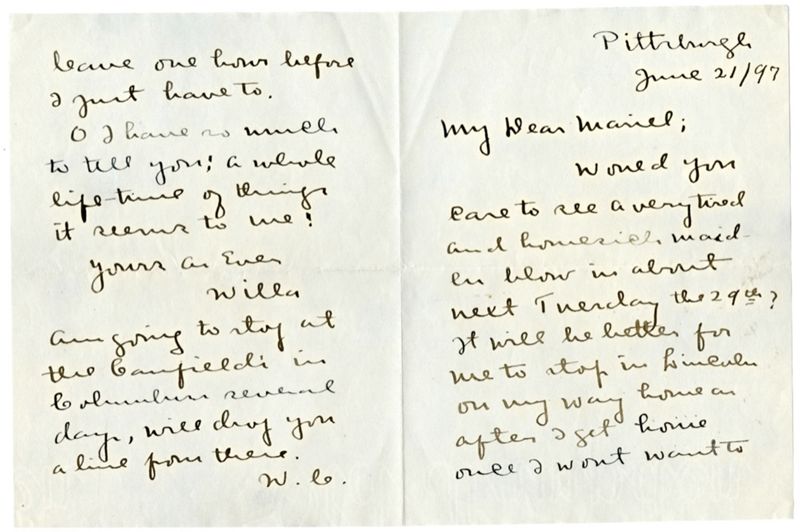 Pittsburgh
June 21/97
My Dear Mariel;
Would you
care to see a very tired
and homesick maid-
en blow in about
next Tuesday the 29th?
It will be better for
me to stop in Lincoln
on my way home as
after I get home
once I wont want to
leave one hour before
I just have to.
O I have so much
to tell you; a whole
life-time of things
it seems to me!
Yours as Ever
Willa
Am going to stop at
the Canfields in
Columbus several
days, will drop you
a line from there.
W. C.